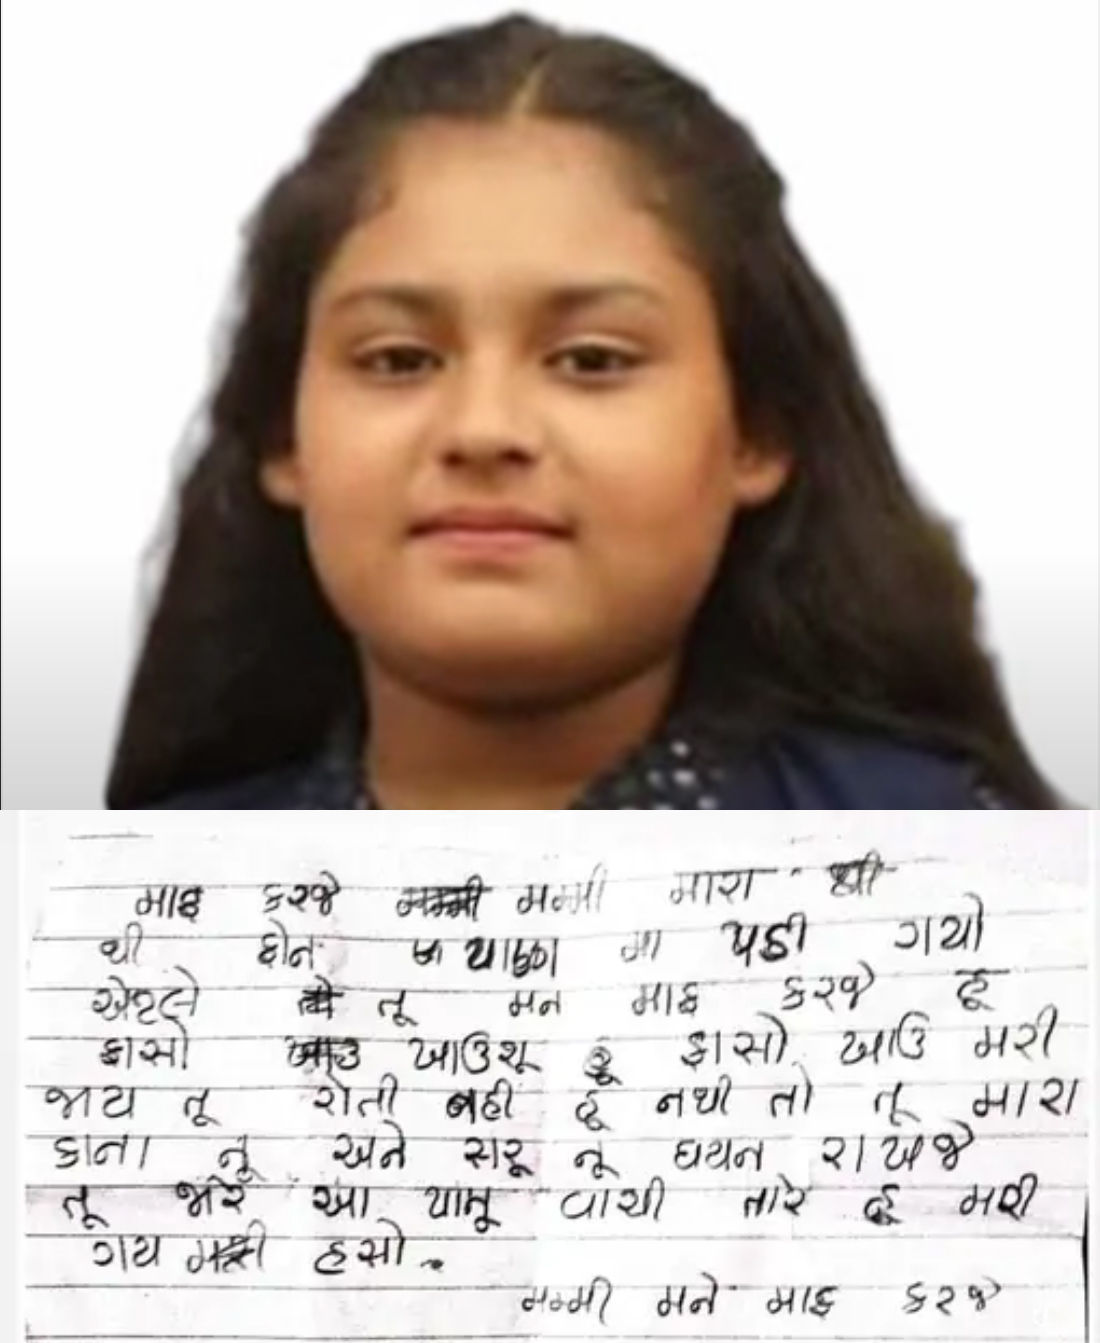 માફ કરજે મમ્મી મારા
થી ફોન પાણી મા પડી ગયો
એટલે તૂ મન માફ કરજે હૂ
ફાસો ખાઉશૂ હૂ ફાસો ખાઉ મરી
જાય તૂ રોતી નહી હૂ નથી તો તૂ મારા
કાના નૂ અને સરૂ નૂ ધયન રાખજે
તૂ જારે આ પાનૂ વાચી તારે હૂ મરી
ગય હસો
મમ્મી મને માફ કરજે